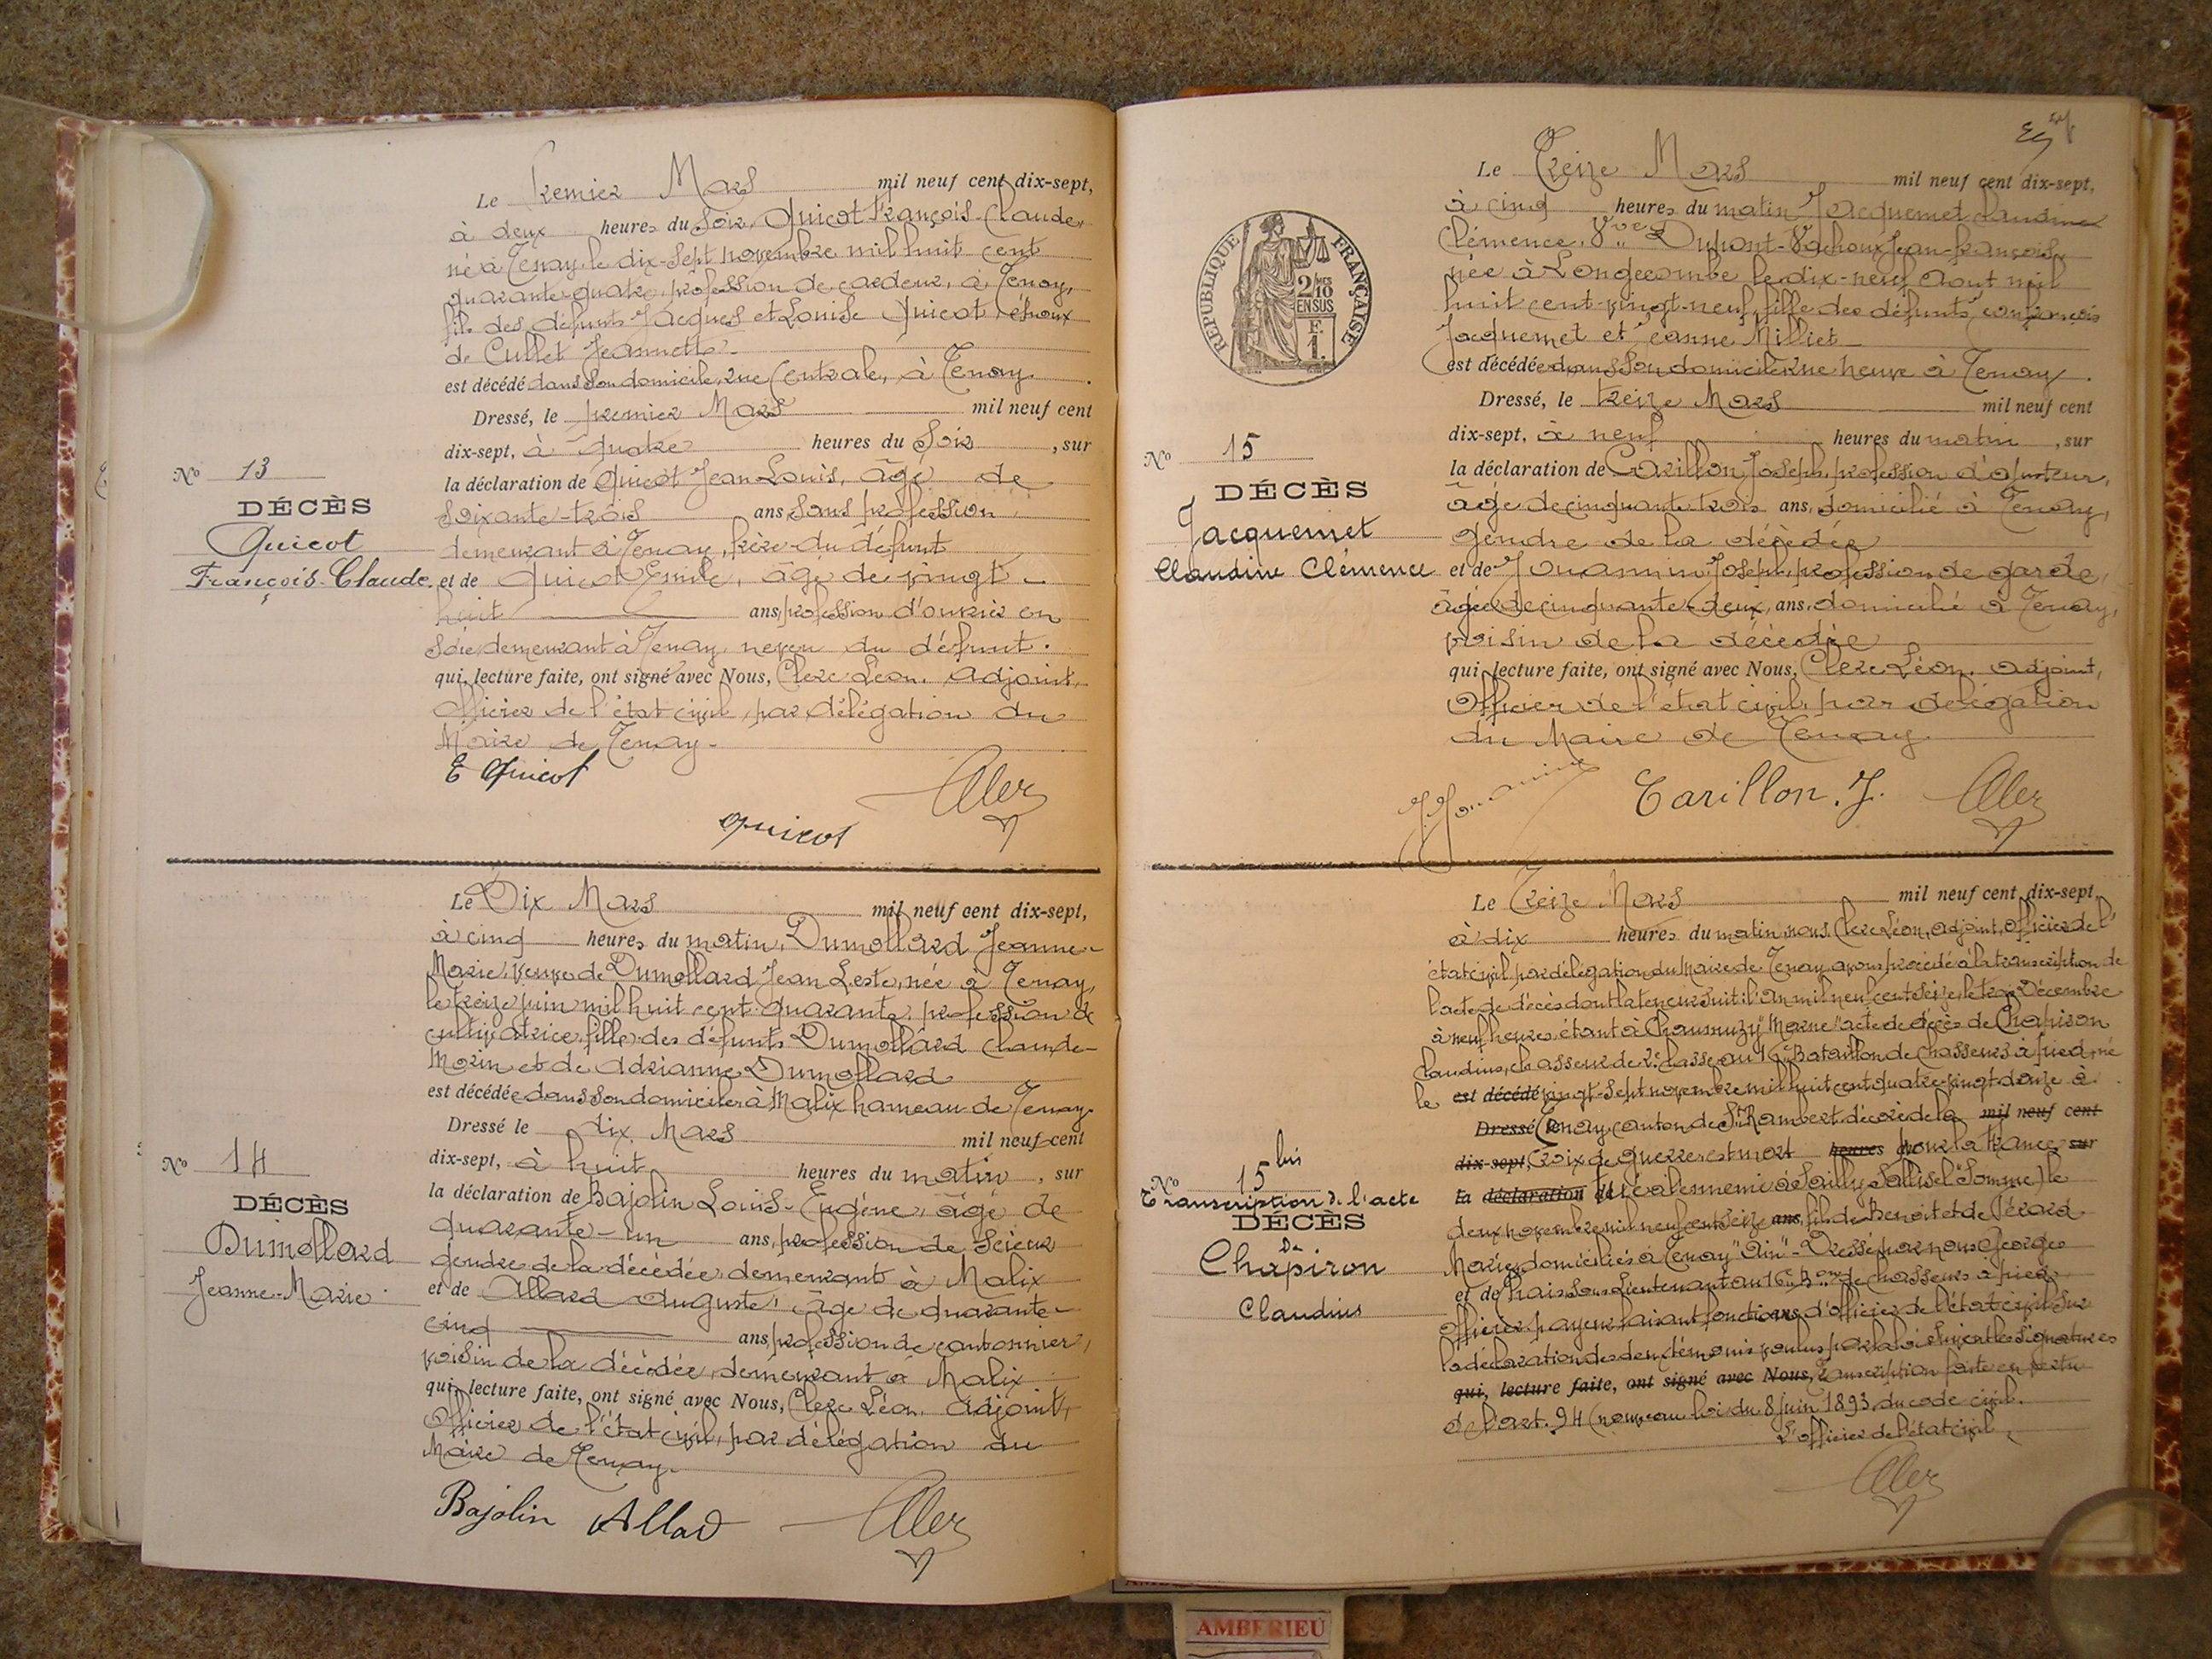 Le Premier Mars mil neuf cent dix-sept,
à deux heures du soir, Quicot François-Claude,
né à Tenay le dix-sept novembre mil huit cent
quarante-quatre, profession de cardeur, à Tenay,
fils des défunts Jacques et Louise Quicot époux
de Cullet Jeannette.
est décédé dans son domicile, rue Centrale, à Tenay.
Dressé, le premier Mars mil neuf cent
dix-sept, à quatre heures du soir, sur
la déclaration de Quicot Jean Louis, âgé de
soixante-trois ans, sans profession,
demeurant à Tenay, frère du défunt
et de Quicot Emile, âgé de vingt-
huit ans, profession d'ouvrier en
soie, demeurant à Tenay, neveu du défunt.
qui, lecture faite, ont signé avec Nous, Clerc Léon, Adjoint,
Officier de l'état civil, par délégation du
Maire de Tenay.
E Quicot
Quicot
Clerc
No 13
DÉCÈS
Quicot
François-Claude
Le Dix Mars mil neuf cent dix-sept,
à cinq heures du matin, Dumollard Jeanne-
Marie, veuve de Dumollard Jean Leste, née à Tenay,
le treize juin mil huit cent quarante, profession de
cultivatrice, fille des défunts Dumollard Claude-
Marin et de Adrianne Dumollard
est décédée dans son domicile à Malix hameau de Tenay.
Dressé le dix Mars mil neuf cent
dix-sept, à huit heures du matin, sur
la déclaration de Bajolin Louis-Eugène, âgé de
quarante-un ans, profession de scieur
gendre de la décédée, demeurant à Malix
et de Allard Auguste, âgé de quarante-
cinq ans, profession de cantonnier,
voisin de la décédée, demeurant à Malix
qui, lecture faite, ont signé avec Nous, Clerc Léon, Adjoint,
Officier de l'état civil, par délégation du
Maire de Tenay.
Bajolin Allard Clerc
No 14
DÉCÈS
Dumollard
Jeanne-Marie
RÉPUBLIQUE FRANÇAISE
2/10 EN SUS
F. 1.
Le Treize Mars mil neuf cent dix-sept,
à cinq heures du matin Jacquemet Claudine
Clémence, Vve Dupont-Vachoux Jean-François,
née à Longecombe le dix-neuf août mil
huit cent vingt-neuf, fille des défunts François
Jacquemet et Jeanne Milliet
est décédée dans son domicile rue neuve à Tenay.
Dressé, le treize Mars mil neuf cent
dix-sept, à neuf heures du matin, sur
la déclaration de Tarillon Joseph, profession d'ajusteur,
âgé de cinquante trois ans, domicilié à Tenay,
gendre de la décédée
et de Jouannin Joseph, profession de garde,
âgé de cinquante-deux, ans, domicilié à Tenay,
voisin de la décédée
qui, lecture faite, ont signé avec Nous, Clerc Léon, adjoint,
Officier de l'état civil, par délégation
du Maire de Tenay.
Tarillon. J. Clerc
No 15
DÉCÈS
Jacquemet
Claudine Clémence
Le Treize Mars mil neuf cent dix-sept
à dix heures du matin, nous, Clerc Léon, adjoint, Officier de l'
état civil par délégation du Maire de Tenay, avons procédé à la transcription de
l'acte de décès dont la teneur suit: l'An mil neuf cent seize, le trois Décembre
à neuf heures, étant à Chaumuzy "Marne" acte de décès de Chapiron
Claudius, chasseur de 2e classe au 16e Bataillon de Chasseurs à pied, né
le est décédé vingt-sept novembre mil huit cent quatre-vingt-douze à
Dressé le Tenay, canton de St Rambert, décoré de la mil neuf cent
dix-sept Croix de guerre est mort heures pour la France sur
la déclaration de tué à l'ennemi à Sailly-Sallisel (Somme) le
deux novembre mil neuf cent seize ans, fils de Benoit et de Pérard
Marie, domiciliés à Tenay "Ain" - Dressé par nous Georges
et de Sous-Lieutenant au 16e Bon de Chasseurs à pied,
Officier payeur faisant fonctions d'officier de l'état civil sur
la déclaration des deux témoins voulus par la loi. Suivent les signatures
qui, lecture faite, ont signé avec Nous, Transcription faite en vertu
de l'art. 94 (nouveau loi du 8 juin 1893 du code civil.
L'officier de l'état civil,
Clerc
No 15 bis
Transcription de l'acte
DÉCÈS
De
Chapiron
Claudius
AMBERIEU